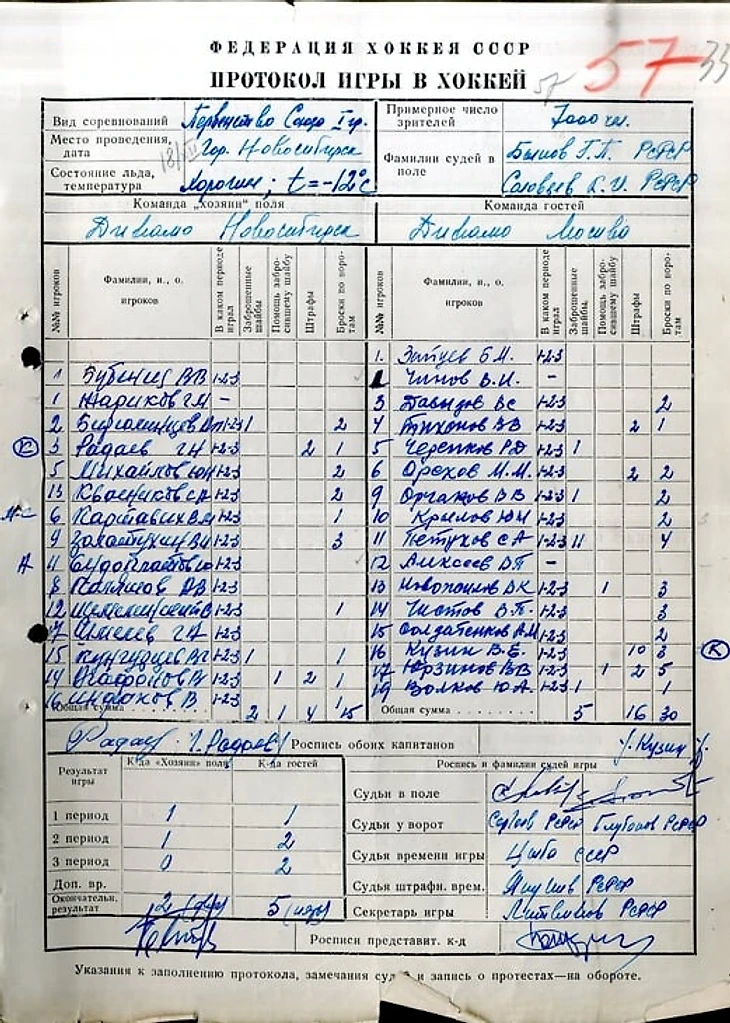 57 33
57
ФЕДЕРАЦИЯ ХОККЕЯ СССР
ПРОТОКОЛ ИГРЫ В ХОККЕЙ
Вид соревнований Первенство Союза I гр.
Примерное число зрителей 7000 чел.
Место проведения, дата 18/XII гор. Новосибирск
Фамилии судей в поле Быков Г.П. РСФСР
Соловьев К.И. РСФСР
Состояние льда, температура Хорошее; t = -12°с
Команда „Хозяин" поля
Команда гостей
Динамо Новосибирск
Динамо Москва
№№ игроков Фамилии, и., о. игроков В каком периоде играл Заброшенные шайбы Помощь забросившему шайбу Штрафы Броски по воротам
№№ игроков Фамилии, и., о. игроков В каком периоде играл Заброшенные шайбы Помощь забросившему шайбу Штрафы Броски по воротам
1. Зайцев Б.М. 1-2-3
1 Бубенец ВВ 1-2-3
1 Чинов В.И. –
1 Жариков ГМ –
3 Давыдов ВС 1-2-3 2
2 1-2-3 1 2
4 Тихонов ВВ 1-2-3 2 1
К 3 Радаев ГН 1-2-3 2 1
5 Черепков РД 1-2-3 1
5 Михайлов ЮН 1-2-3 2
6 Орехов М.М. 1-2-3 2 2
13 Квасников СА 1-2-3 2
9 ВВ 1-2-3 1 2
6 Каргавих 1-2-3 1
10 Крылов ЮН 1-2-3 2
9 Захватухин 1-2-3 3
11 Петухов СА 1-2-3 11 4
11
12 Алексеев ВП –
8 Каляшов ВВ 1-2-3
13 Новокрещенов ВК 1-2-3 1 3
12 1-2-3 1
14 Чистов В.П. 1-2-3 3
7 ГА 1-2-3
15 Солдатенков АМ 1-2-3 2
15 Кунгурцев 1-2-3 1 1
16 Кузин В.Е. 1-2-3 10 3 К
14 Агафонов В 1-2-3 1 2 1
17 Юрзинов ВВ 1-2-3 1 2 5
16 В 1-2-3 1
19 Волков Ю.А. 1-2-3 1 1
Общая сумма 2 1 4 15
Общая сумма 5 16 30
Радаев Г. Радаев Роспись обоих капитанов Кузин
Результат игры К-да „Хозяин" поля К-да гостей
Роспись и фамилии судей игры
Судьи в поле
1 период 1 1
Судьи у ворот РСФСР РСФСР
2 период 1 2
Судья времени игры Цыба СССР
3 период 0 2
Судья штрафн. врем. РСФСР
Доп. вр.
Окончательн. результат 2 (два) 5 (пять)
Секретарь игры Литвинов РСФСР
Росписи представит. к-д
Указания к заполнению протокола, замечания суд и запись о протестах—на обороте.